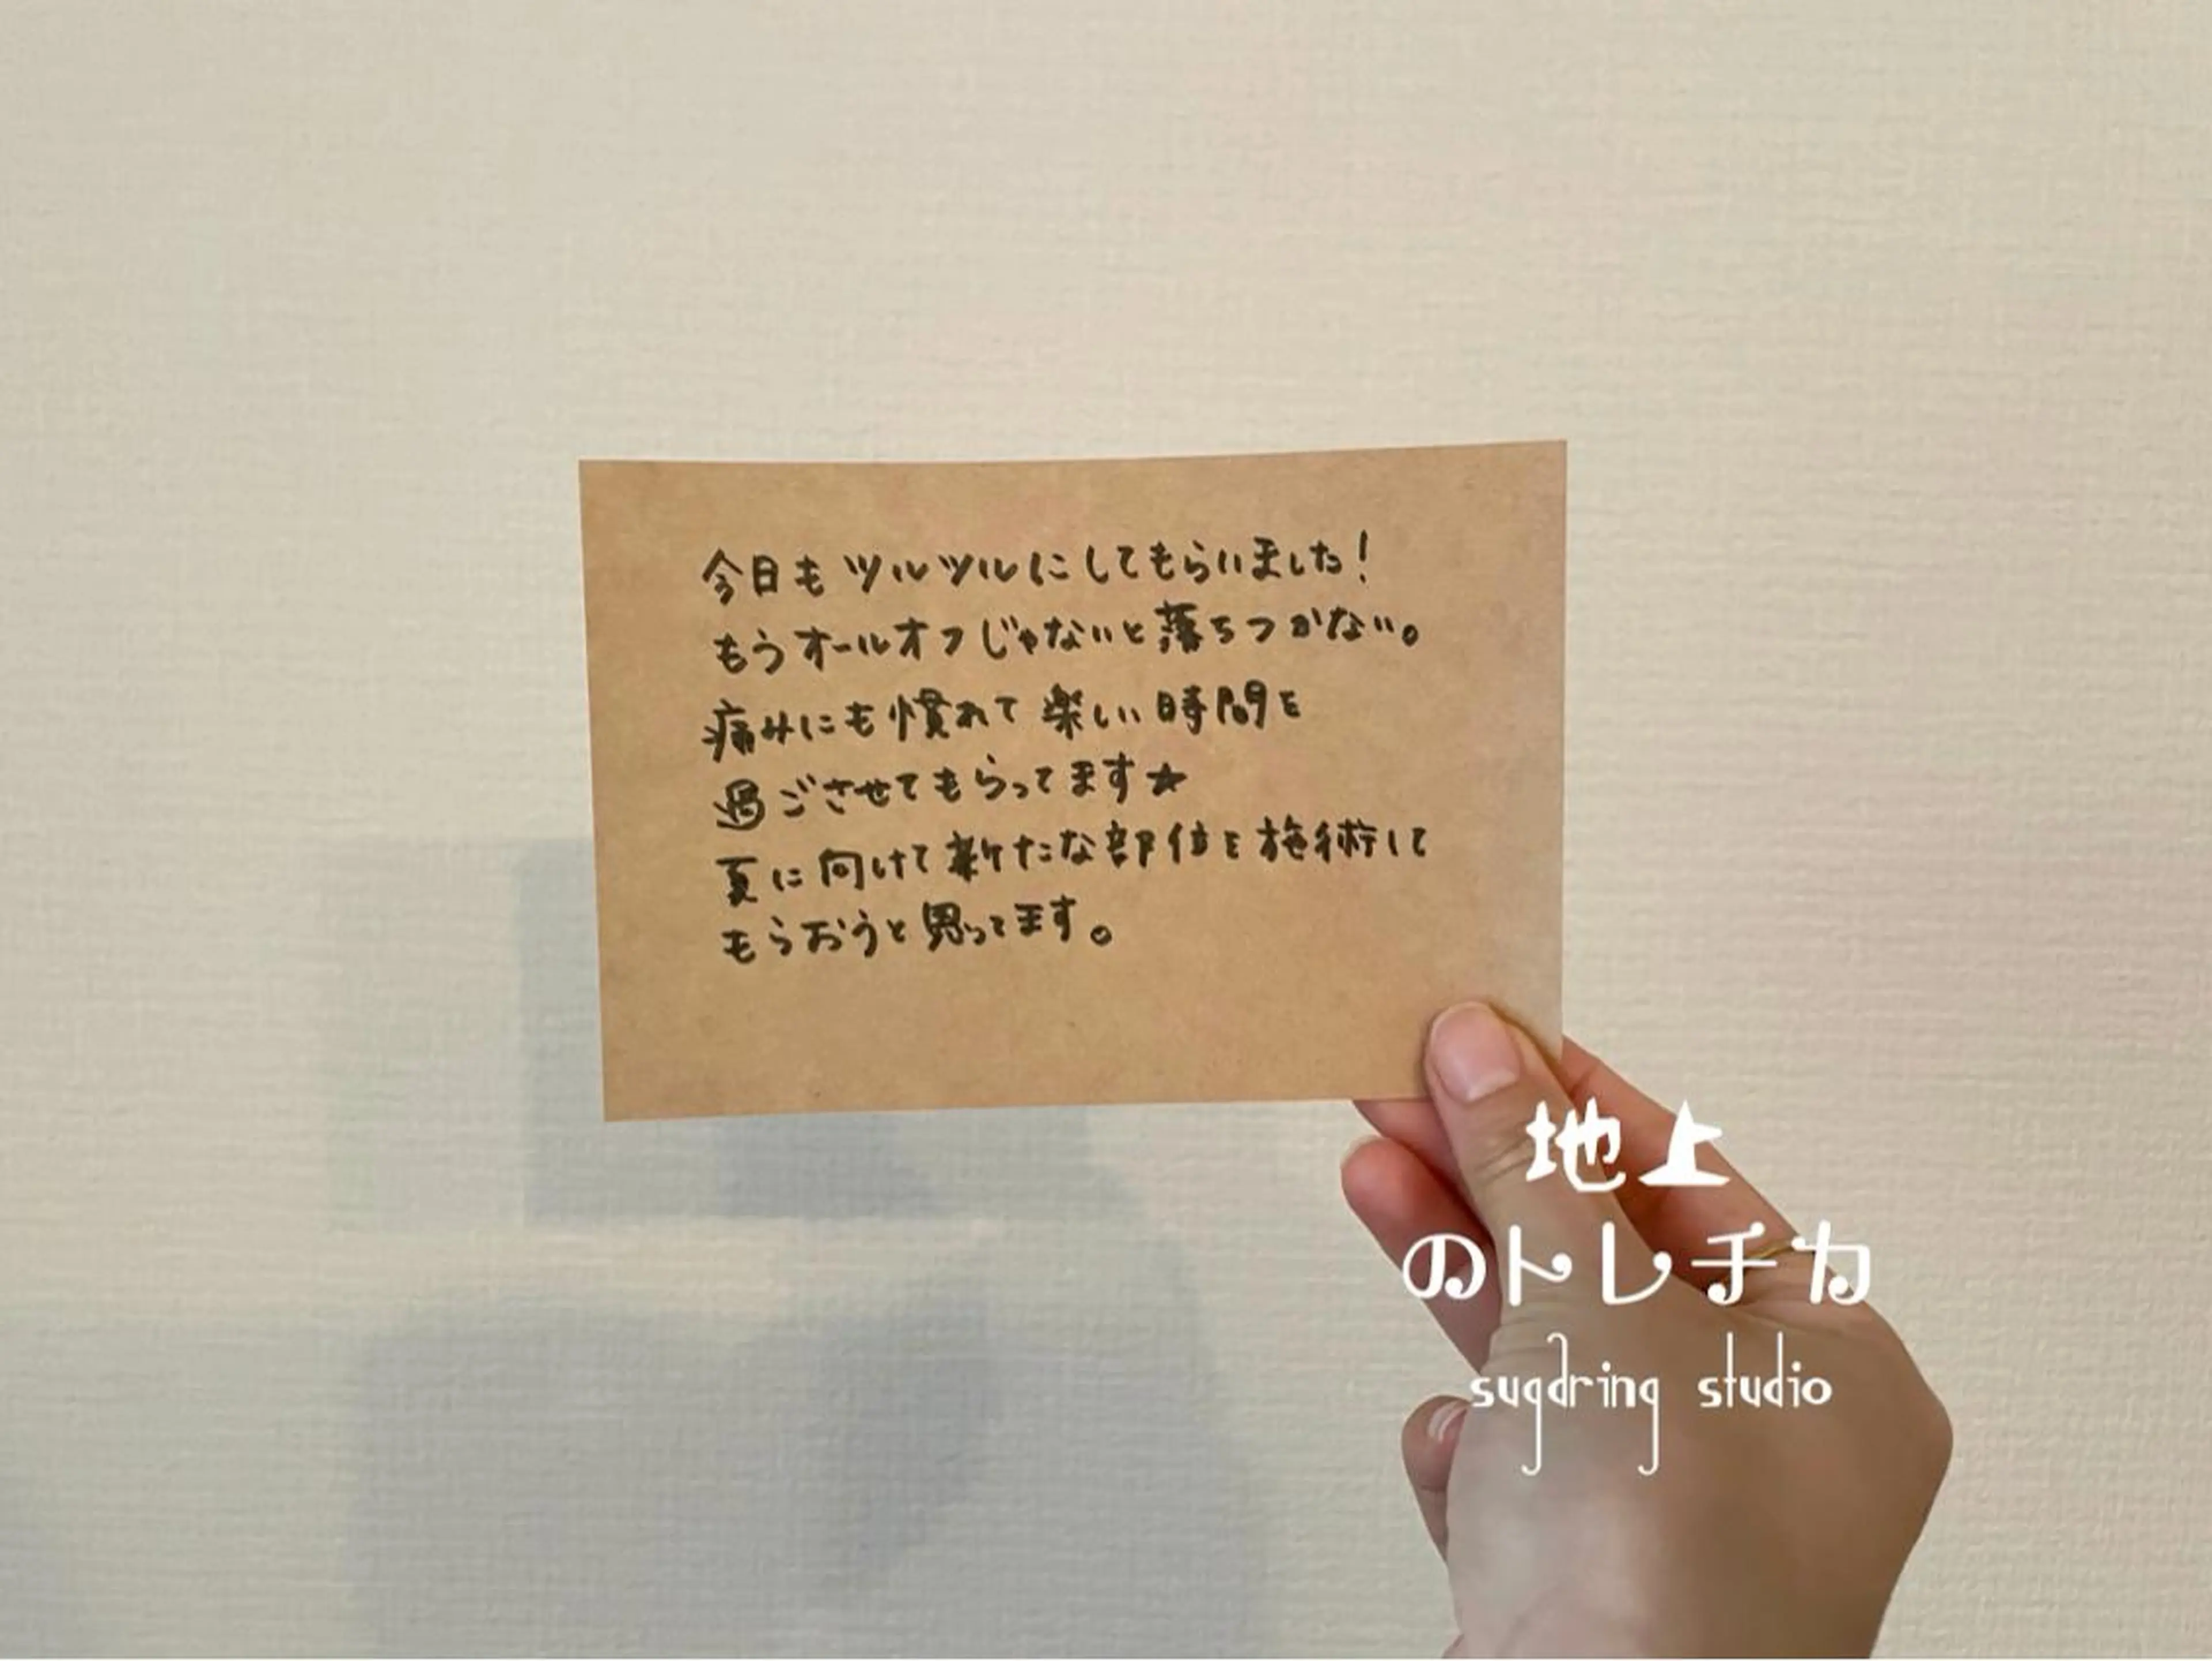 今日もツルツルにしてもらいました!
もうオールオフじゃないと落ちつかない。
痛みにも慣れて楽しい時間を
過ごさせてもらってます★
夏に向けて新たな部位を施術して
もらおうと思ってます。
地上
のトレチカ
sugaring studio